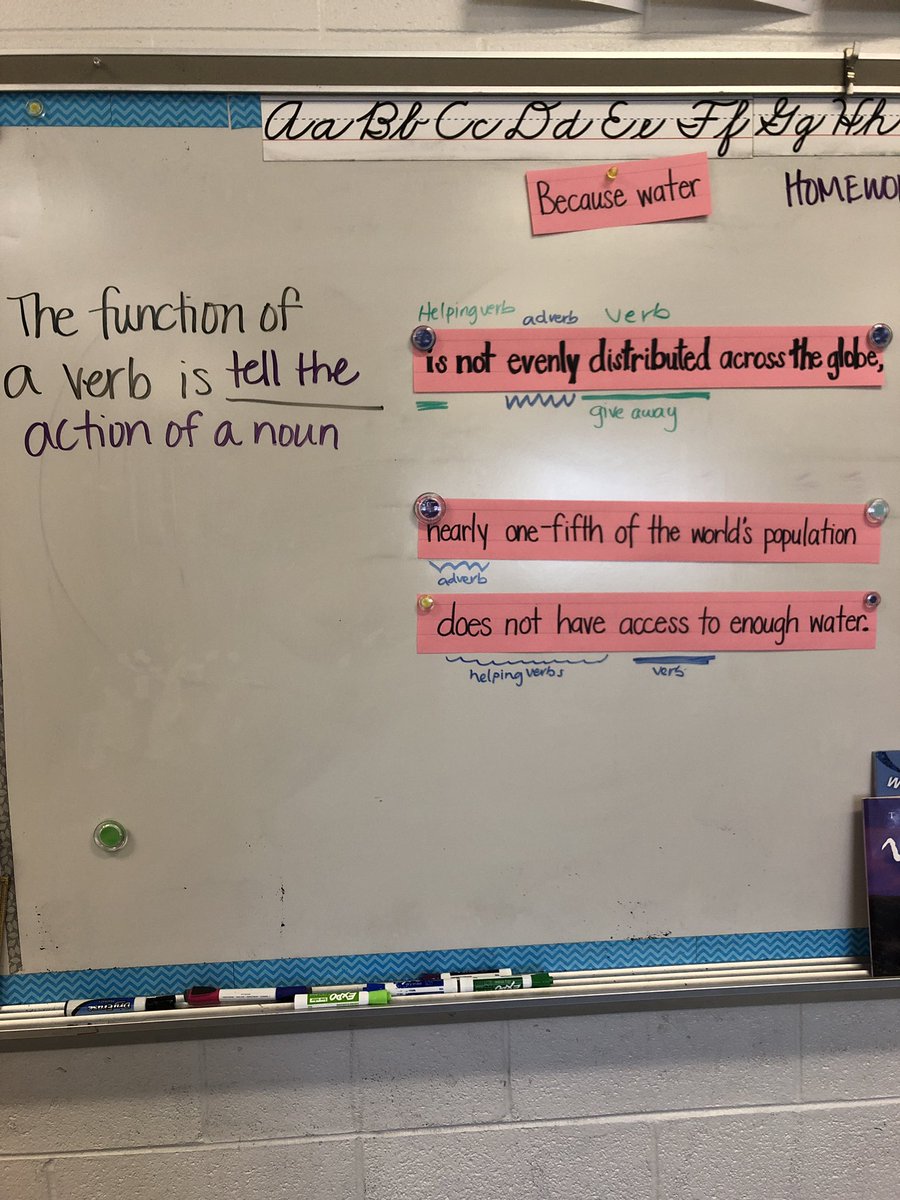 Aa Bb Cc Dd Ee Ff Gg Hh
Because water
The function of
a verb is tell the
action of a noun
Helping verb adverb verb
is not evenly distributed across the globe,
give away
nearly one-fifth of the world's population
adverb
does not have access to enough water.
helping verbs verb
EXPO